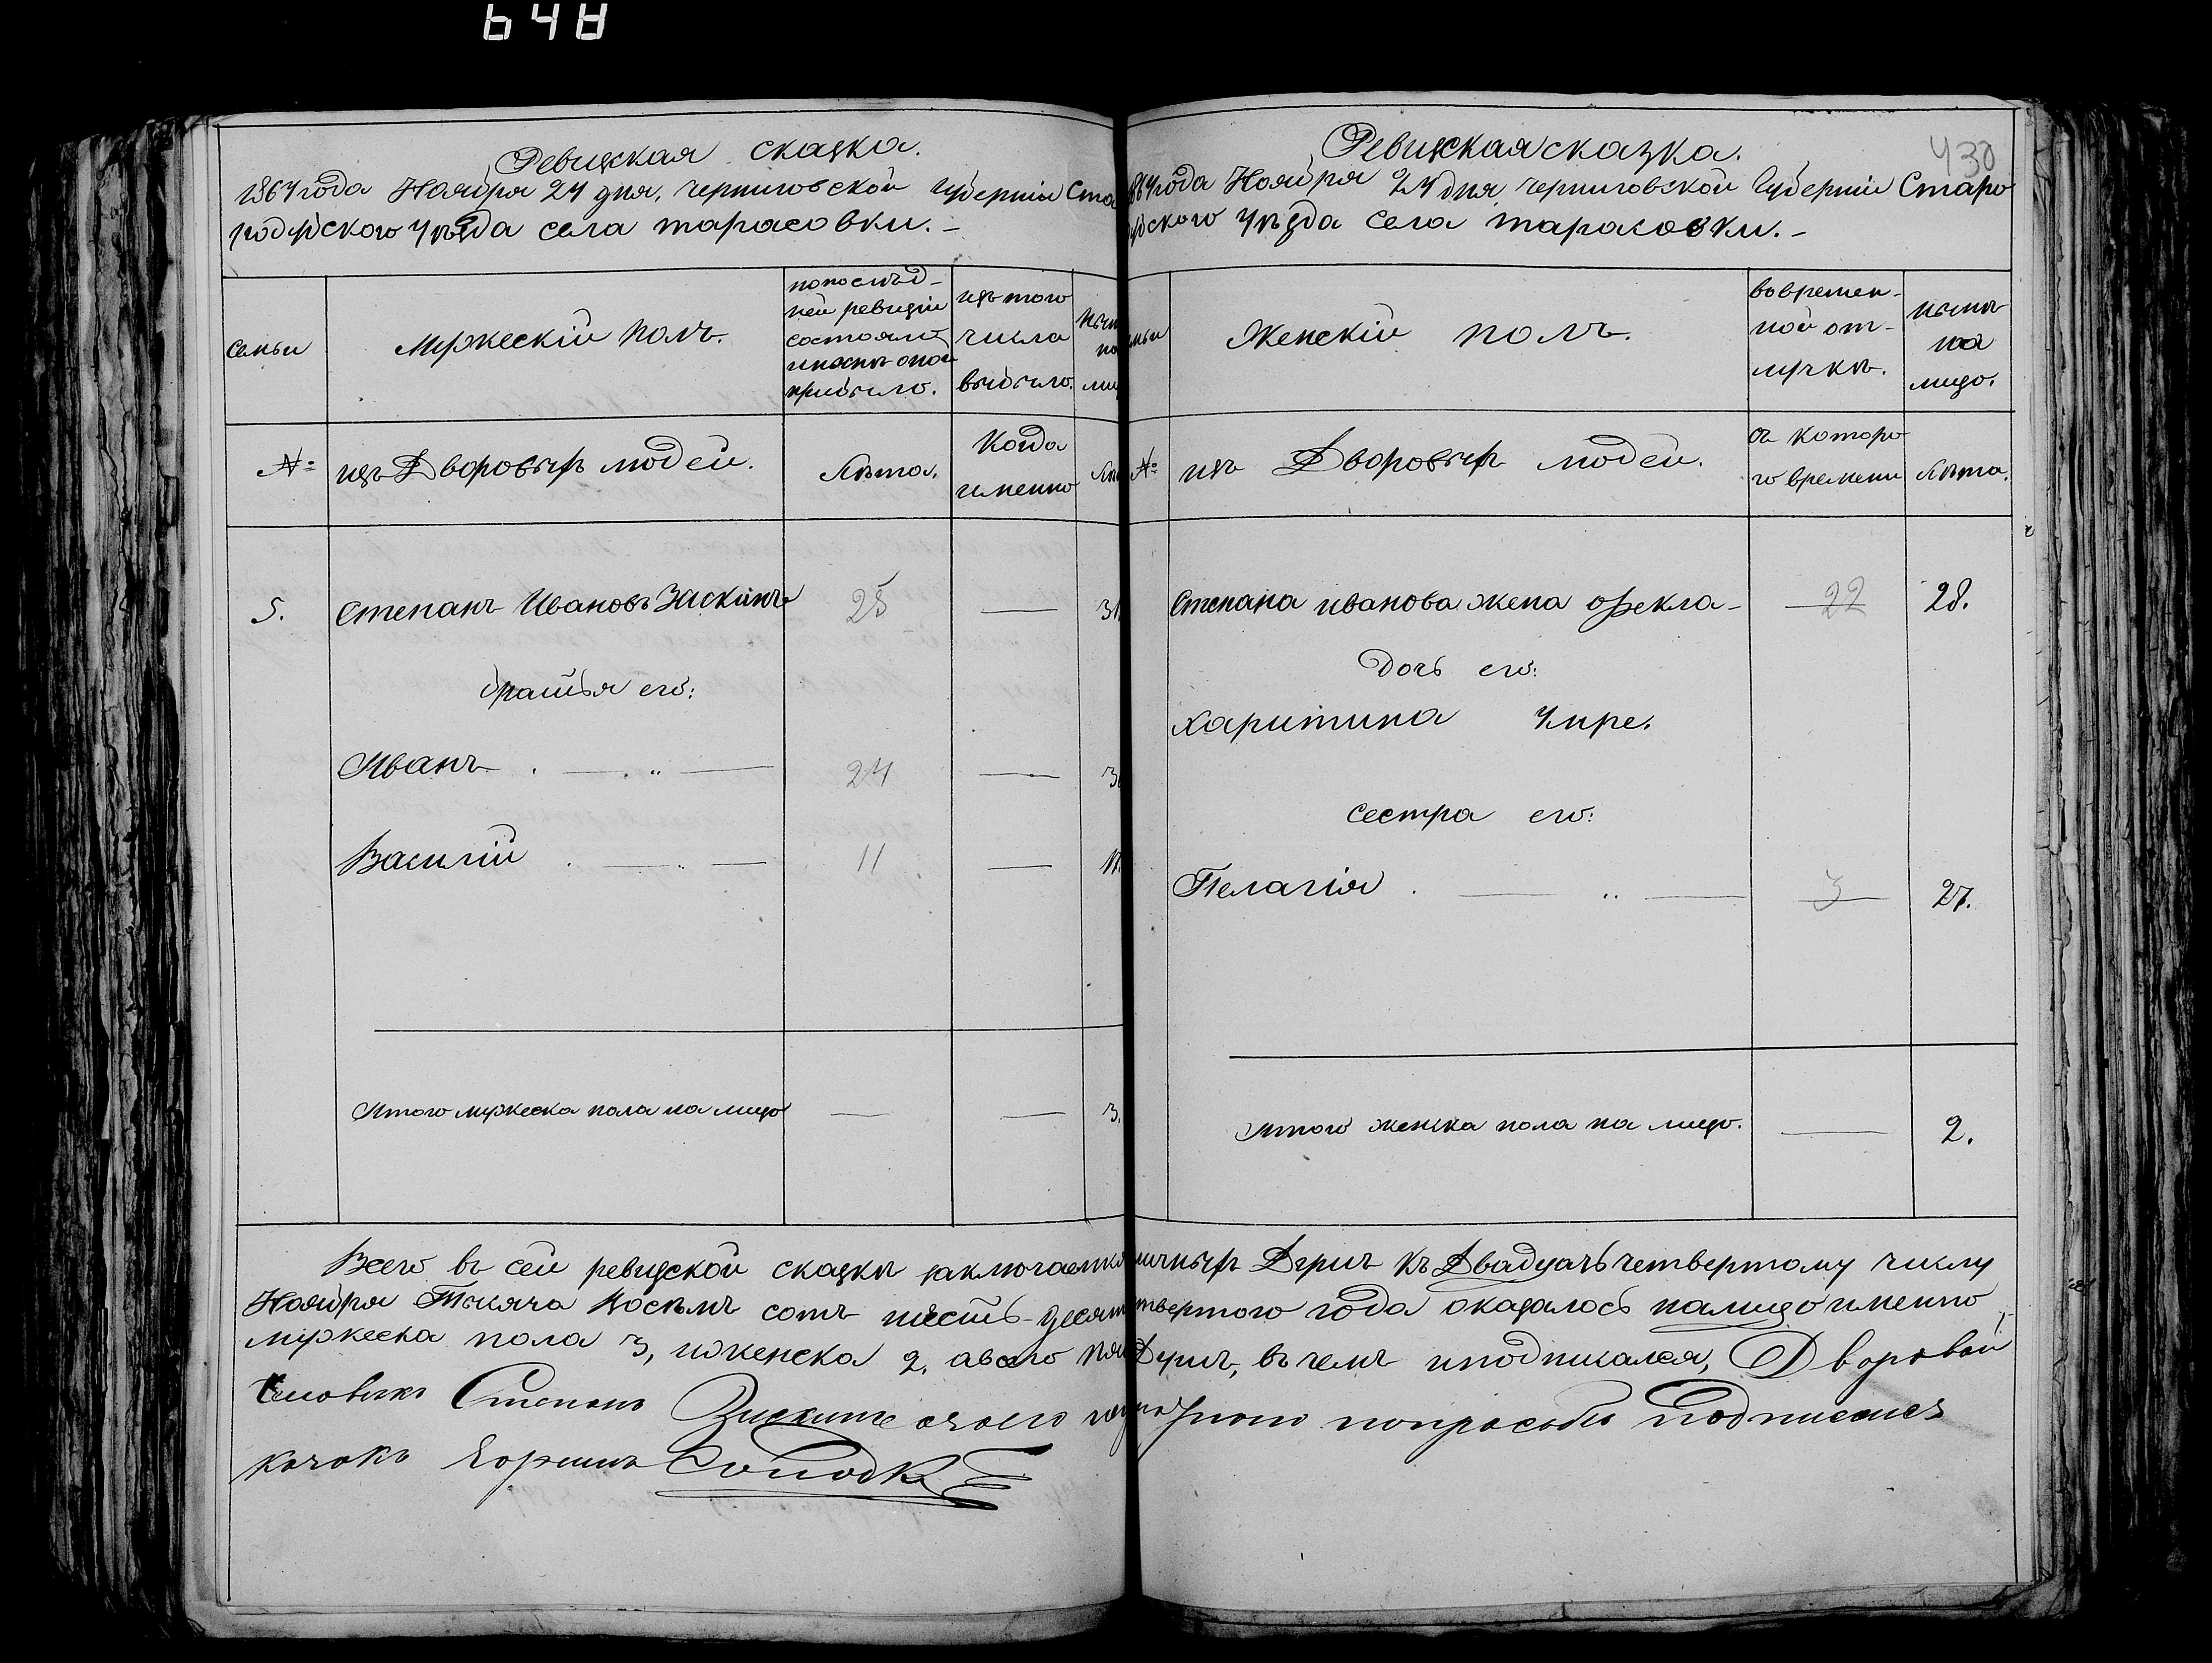 648
Ревизская сказка.
1864 года Ноября 24 дня, Черниговской Губерніи Ста
родубского Уѣзда села тарасовки. –
семьи
мужескій полъ.
по послѣд–
ней ревизіи
состояло
и послѣ оной
прибыло.
изъ того
числа
выбыло.
нын
на
ли
№
изъ Дворовыхъ людей.
лѣта.
Когда
именно
лѣ
5.
Степанъ Ивановъ Зискинъ
25
—
31
братья его:
Иванъ
24
—
3
Василій
11
—
Итого мужеска пола на лицо
—
—
3.
Ревизская сказка.
430
1864 года Ноября 24 дня, Черниговской Губерніи Старо
дубского Уѣзда села тарасовки. –
Женскій полъ.
во времен–
ной от–
лучкѣ.
нынѣ
на
лицо.
№
изъ Дворовыхъ людей.
съ которо
го времени
лѣта.
Степана иванова жена Фекла –
22
28.
дочь его:
Харитина Умре.
сестра его:
Пелагія
3
27.
Итого женска пола на лицо.
—
2.
Всего въ сей ревизской сказкѣ заключается наличныхъ Душъ къ Двадцать четвертому числу
Ноября Тысяча Восемъ сотъ шесть–десят четвертого года оказалось налицо именно,
мужеска пола 3, и женска 2, а всего пять Душъ, въ чемъ и подписался, Дворовой
человѣкъ Степанъ Зискинъ а за его неграмотного по просьбѣ подписался
казакъ